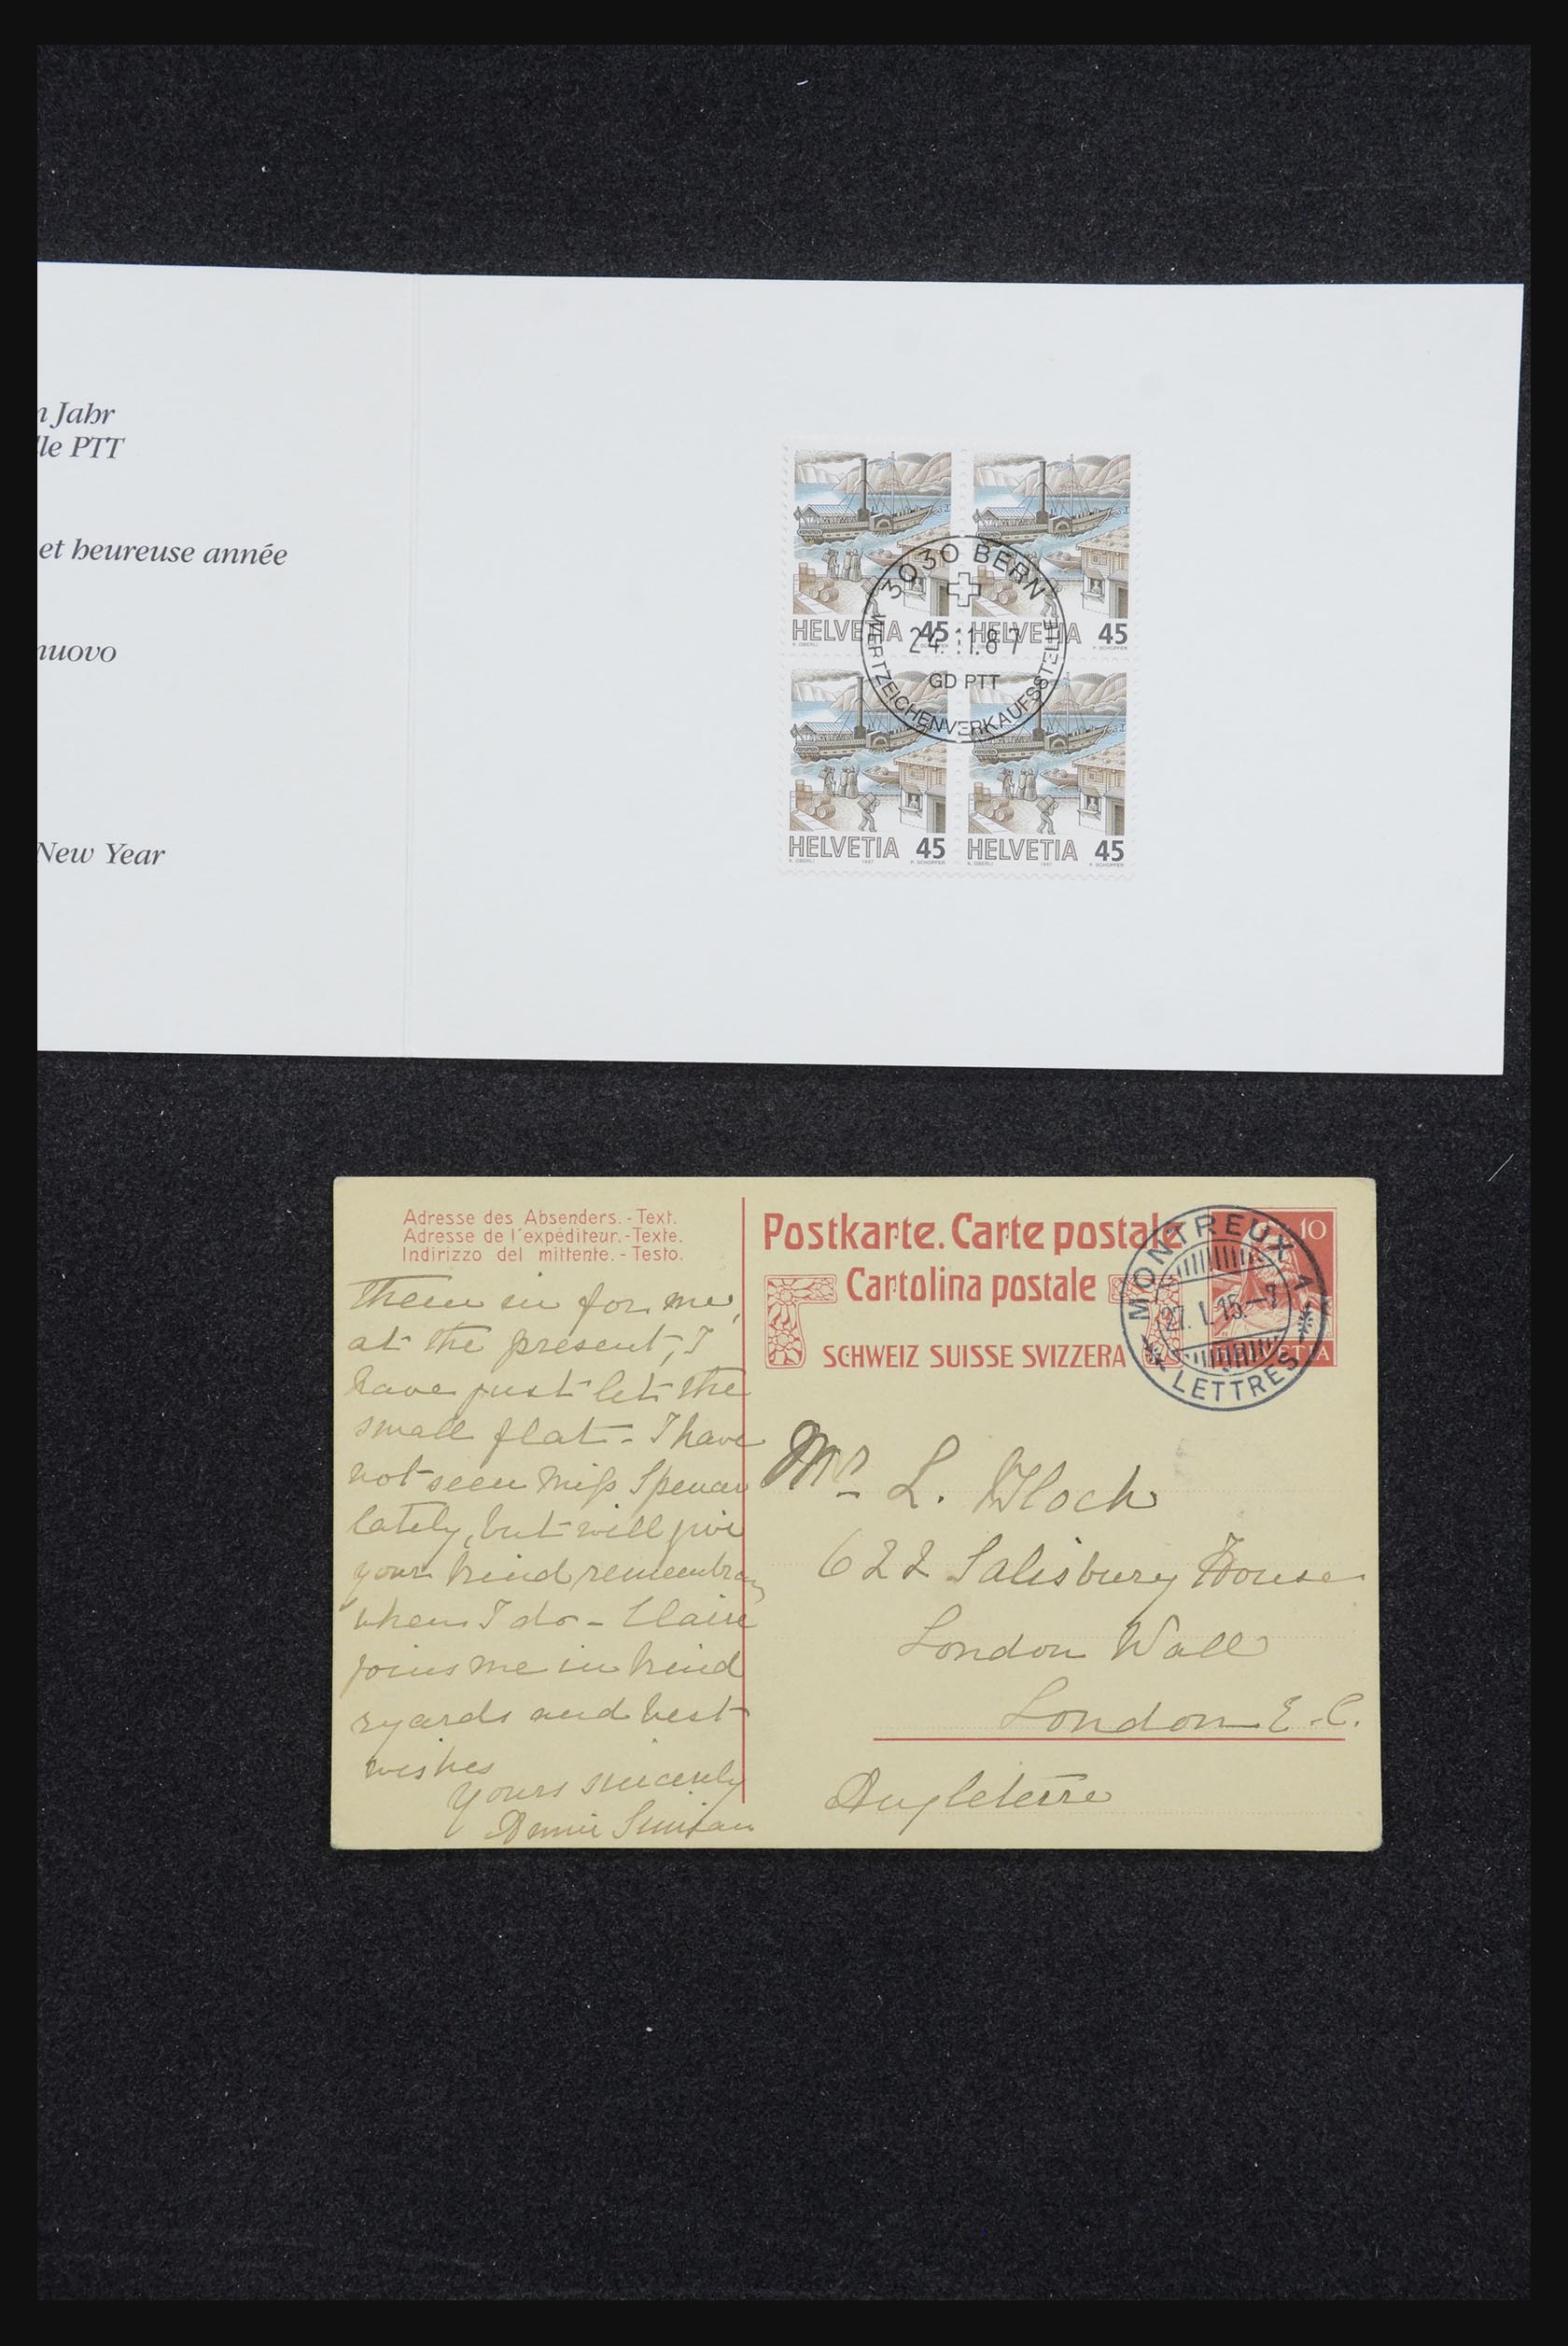 Jahr
lle PTT
et heureuse année
nuovo
New Year
HELVETIA 45
HELVETIA 45
3030 BERN
24.11.87
GD PTT
WERTZEICHENVERKAUFSSTELLE
HELVETIA 45
K. OBERLI 1987 P. SCHOPFER
HELVETIA 45
K. OBERLI 1987 P. SCHOPFER
Adresse des Absenders.-Text.
Adresse de l'expéditeur.-Texte.
Indirizzo del mittente.-Testo.
Postkarte. Carte postale
Cartolina postale
SCHWEIZ SUISSE SVIZZERA
10
HELVETIA
MONTREUX 1
27.I.15.-7
LETTRES
them in for me,
at the present, I
have just let the
small flat - I have
not seen Miss
lately, but will give
your kind
when I do - Claire
joins me in kind
regards and best
wishes
Yours sincerely
Mr L.
622 Salisbury House
London Wall
London E.C.
Angleterre